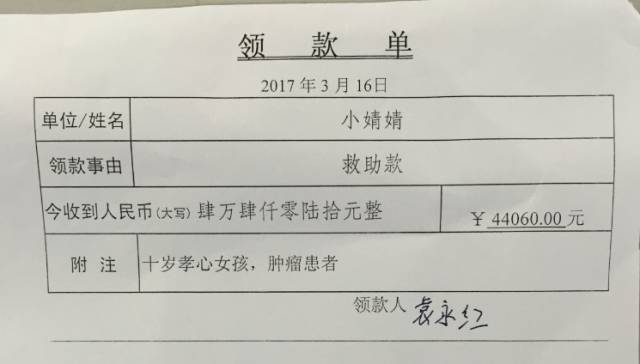 领 款 单
2017 年 3 月 16日
单位/姓名 小婧婧
领款事由 救助款
今收到人民币(大写) 肆万肆仟零陆拾元整 ￥ 44060.00 元
附 注 十岁孝心女孩，肿瘤患者
领款人 袁永红